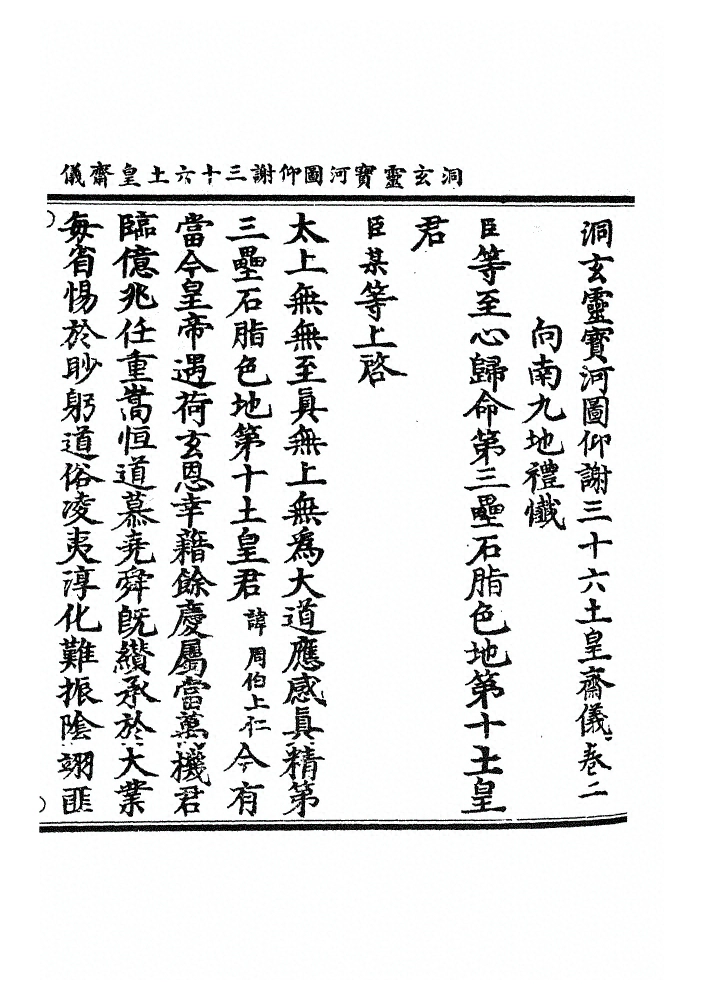 洞玄靈寶河圖仰謝三十六土皇齋儀
洞玄靈寶河圖仰謝三十六土皇齋儀卷二
向南九地禮懺
臣等至心歸命第三壘石脂色地第十土皇
君
臣某等上啓
太上無無至眞無上無爲大道應感眞精第
三壘石脂色地第十土皇君諱周伯上仁今有
當今皇帝遇荷玄恩幸藉餘慶屬當萬機君
臨億兆任重嵩恒道慕堯舜旣纘承於大業
每省惕於眇躬道俗凌夷淳化難振陰翊匪